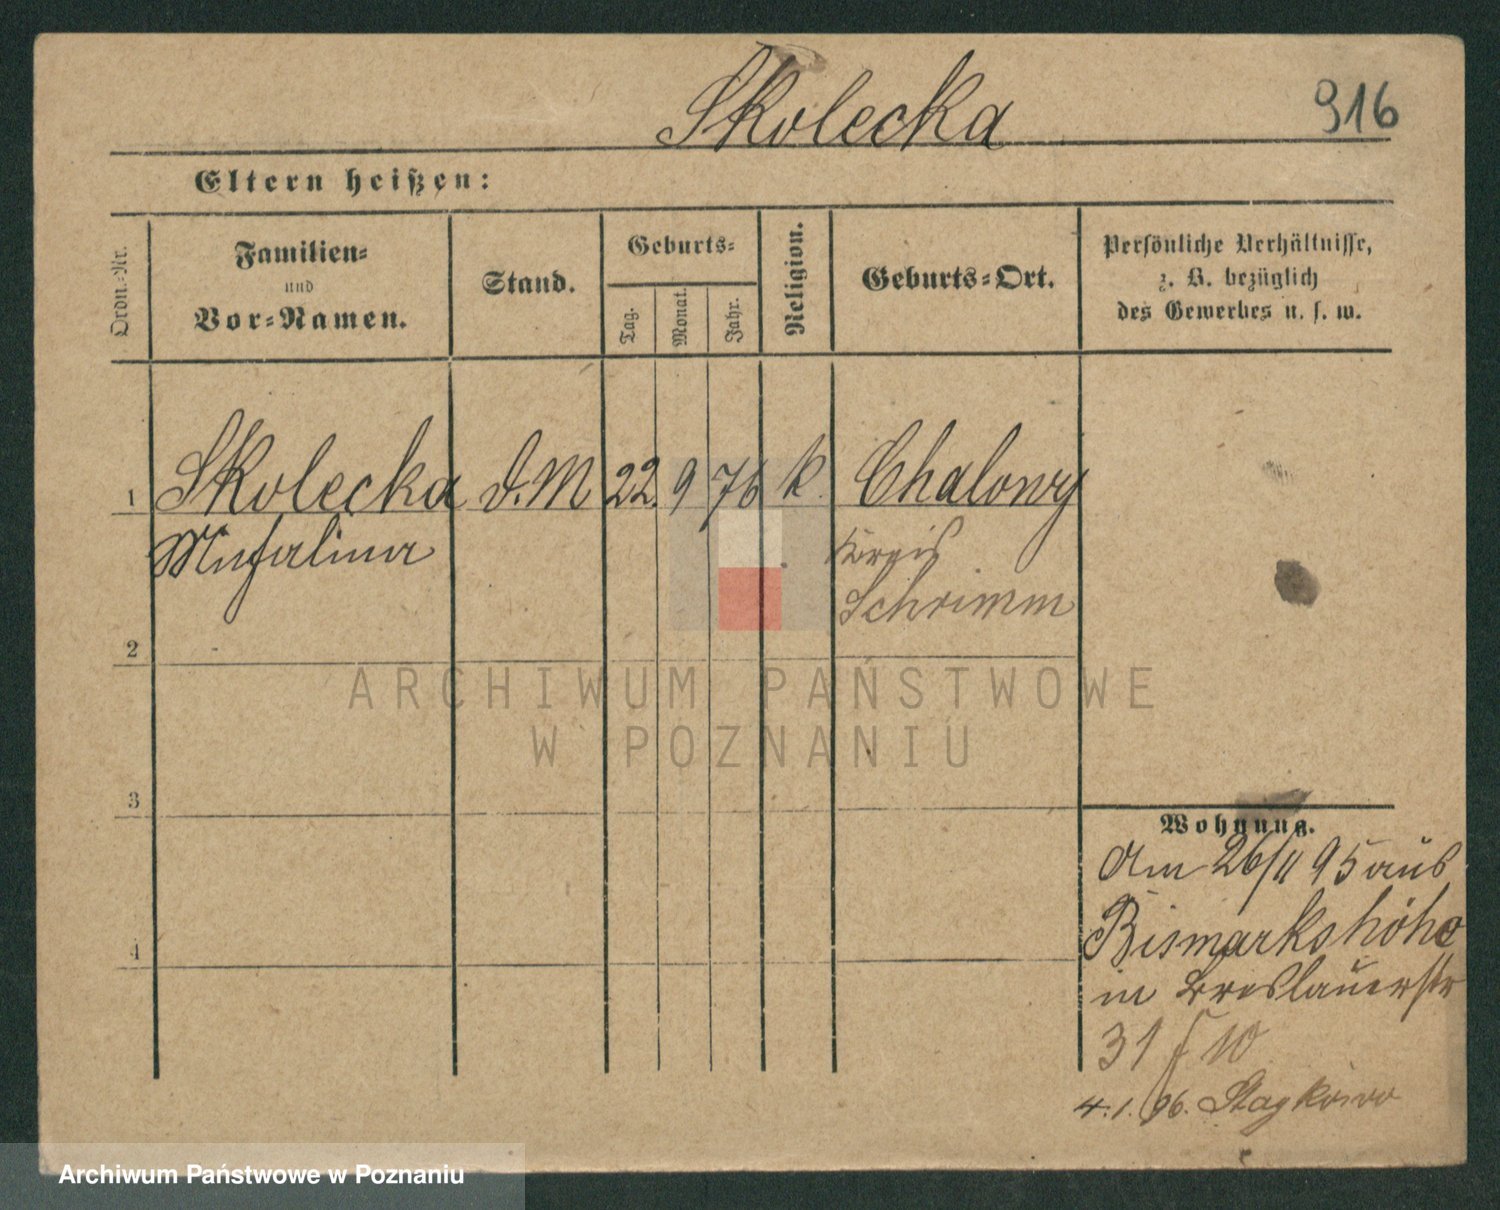 Skolecka 916
Eltern heißen:
Ordn.-Nr.
Familien-
und
Vor-Namen.
Stand.
Geburts-
Tag.
Monat.
Jahr.
Religion.
Geburts-Ort.
Persönliche Verhältnisse,
z. B. bezüglich
des Gewerbes u. s. w.
1 Skolecka d. M 22. 9 76 k. Chalowy
Michalina
Kreis
Schrimm
2
3
4
Wohnung.
Am 26/11 95 aus
Bismarkshöhe
in Breslauerstr
31 10
4. 1. 96.
ARCHIWUM PAŃSTWOWE
W POZNANIU
Archiwum Państwowe w Poznaniu